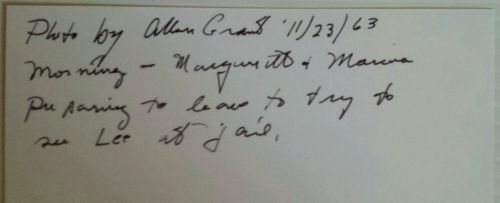 Photo by Allan Grant 11/23/63
Morning - Marguerite & Marina
Preparing to leave to try to
see Lee at jail.